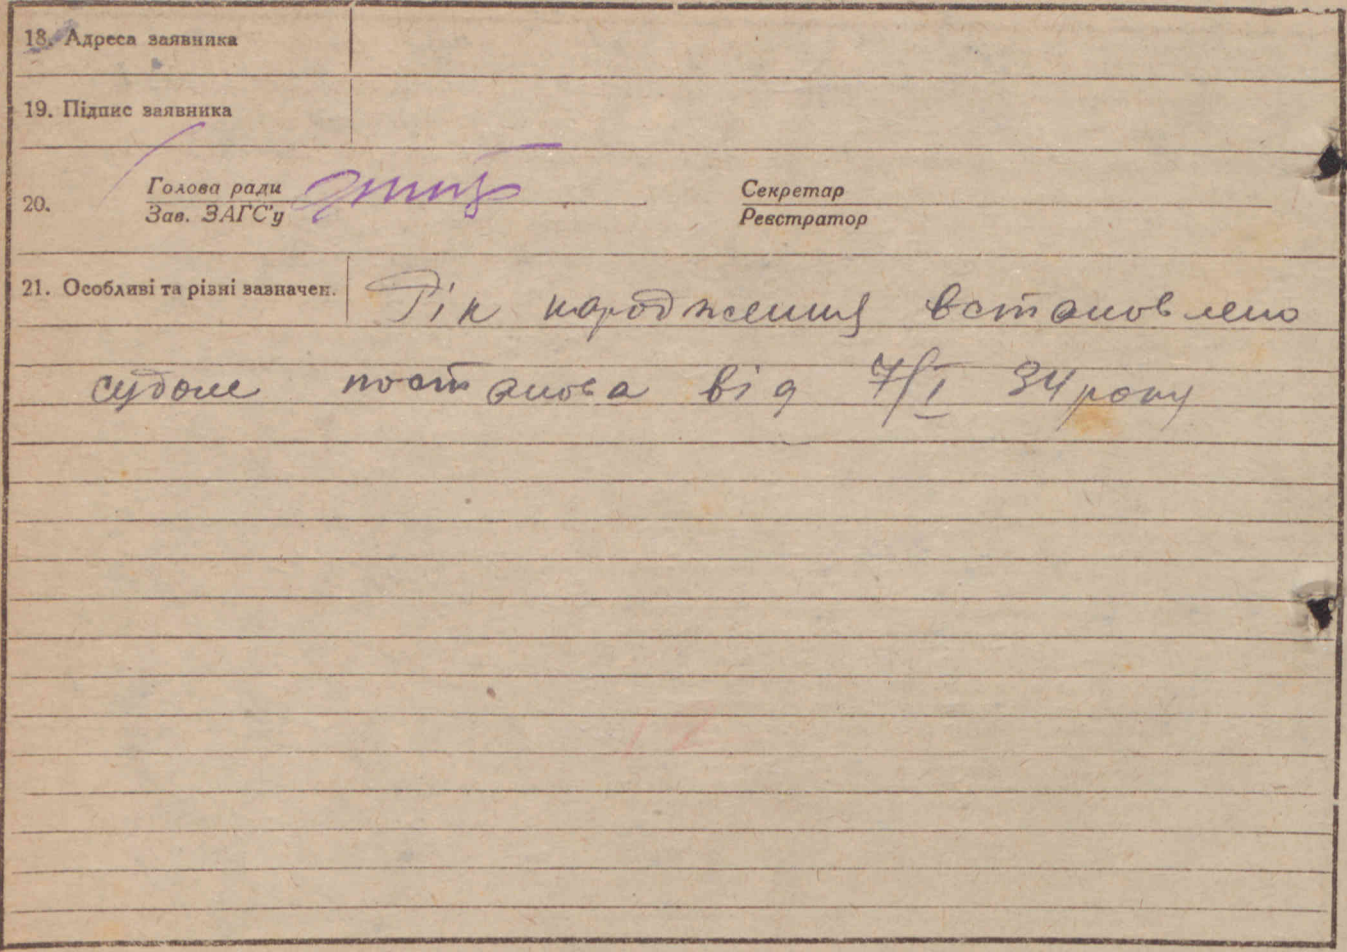 18. Адреса заявника
19. Підпис заявника
20.
Голова ради
Зав. ЗАГС'у
Секретар
Реєстратор
21. Особливі та різні зазначен.
Рік народження встановлено
судом постанова від 7/I 34 року
12